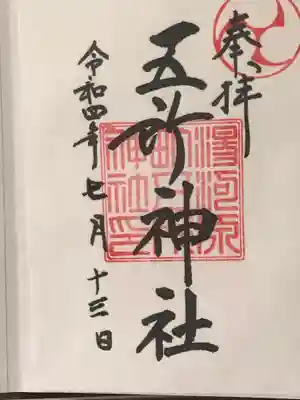 奉拝
五所神社
令和四年七月十三日
湯河原
神社